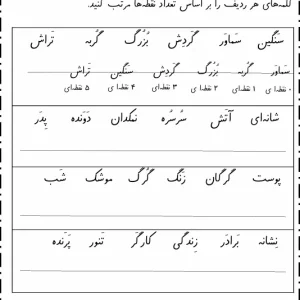 کلمه‌های هر ردیف را بر اساس تعداد نقطه‌ها مرتب کنید.
سَنگین سَماوَر گَردِش بُزُرگ گَربه تَراش
سَماوَر گَربه بُزُرگ گَردِش سَنگین تَراش
۰ نقطه‌ای ۱ نقطه‌ای ۲ نقطه‌ای ۳ نقطه‌ای ۴ نقطه‌ای ۵ نقطه‌ای
شانه‌ای آتَش سُرسُره نَمکدان دَونده پِدَر
پوست گُرگان زَنگ گُرگ موشَک شَب
نِشانه بَرادَر زِندگی کارگَر تَنور پَرَنده